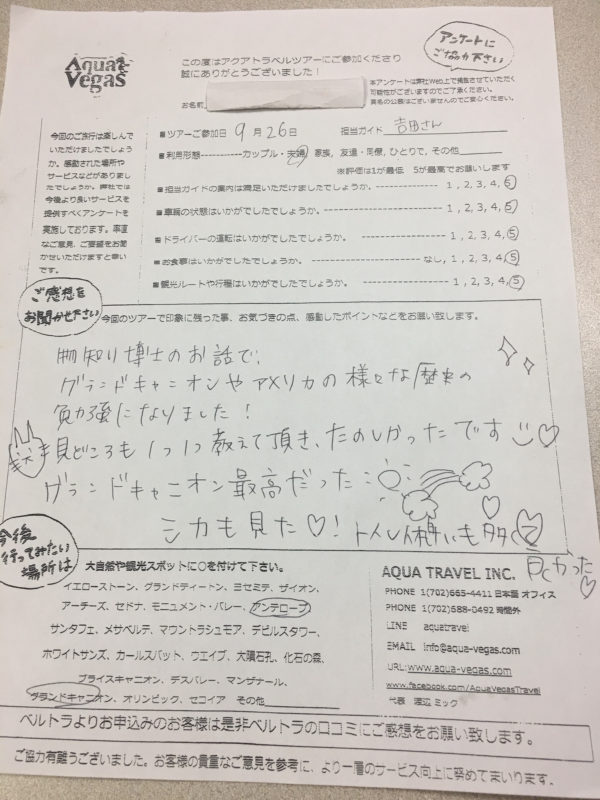 Aqua Vegas
この度はアクアトラベルツアーにご参加くださり
誠にありがとうございました！
アンケートに
ご協力下さい
お名前
本アンケートは弊社Web上で掲載させていただく
可能性がございますのでご了承ください。
実名の公表はございませんのでご安心ください。
今回のご旅行は楽しんで
いただけましたでしょう
か。感動された場所や
サービスなどがありまし
たでしょうか。弊社では
今後より良いサービスを
提供すべくアンケートを
実施しております。率直
なご意見、ご要望をお聞
かせいただけますと幸い
です。
■ツアーご参加日 9月26日 担当ガイド 吉田さん
■利用形態-----------カップル・夫婦, 家族, 友達・同僚, ひとりで, その他
※評価は1が最低 5が最高でお願いします
■担当ガイドの案内は満足いただけましたでしょうか------------- 1, 2, 3, 4, 5
■車輌の状態はいかがでしたでしょうか。------------- 1, 2, 3, 4, 5
■ドライバーの運転はいかがでしたでしょうか。------------- 1, 2, 3, 4, 5
■お食事はいかがでしたでしょうか。------------- なし, 1, 2, 3, 4, 5
■観光ルートや行程はいかがでしたでしょうか。------------- 1, 2, 3, 4, 5
ご感想を
お聞かせ下さい
今回のツアーで印象に残った事、お気づきの点、感動したポイントなどをお願い致します。
物知り博士のお話で、
グランドキャニオンやアメリカの様々な歴史の
勉強になりました！
見どころも1つ1つ教えて頂き、たのしかったです
グランドキャニオン最高だった
シカも見た♡！ トイレ休憩も多くて
良かった
今後
行ってみたい
場所は
大自然や観光スポットに○を付けて下さい。
イエローストーン、グランドティートン、ヨセミテ、ザイオン、
アーチーズ、セドナ、モニュメント・バレー、アンテロープ
サンタフェ、メサベルデ、マウントラシュモア、デビルスタワー、
ホワイトサンズ、カールスバット、ウエイブ、大隕石孔、化石の森、
ブライスキャニオン、デスバレー、マンザナール、
グランドキャニオン、オリンピック、セコイア その他
AQUA TRAVEL INC.
PHONE 1(702)665-4411 日本語 オフィス
PHONE 1(702)688-0492 時間外
LINE aquatravel
EMAIL info@aqua-vegas.com
URL: www.aqua-vegas.com
www.facebook.com/AquaVegasTravel
代表 渡辺 ミック
ベルトラよりお申込みのお客様は是非ベルトラの口コミにご感想をお願い致します。
ご協力有難うございました。お客様の貴重なご意見を参考に、より一層のサービス向上に努めてまいります。